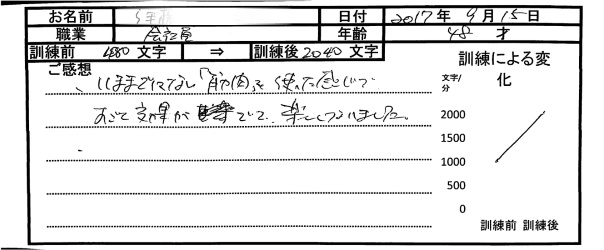 お名前 日付 2017年 9月 15日
職業 会社員 年齢 48 才
訓練前 480 文字 ⇒ 訓練後 2040 文字
ご感想
いままでにない「筋肉」を使った感じで
効果が でていて、楽しい
訓練による変化
文字/分
2000
1500
1000
500
0
訓練前 訓練後